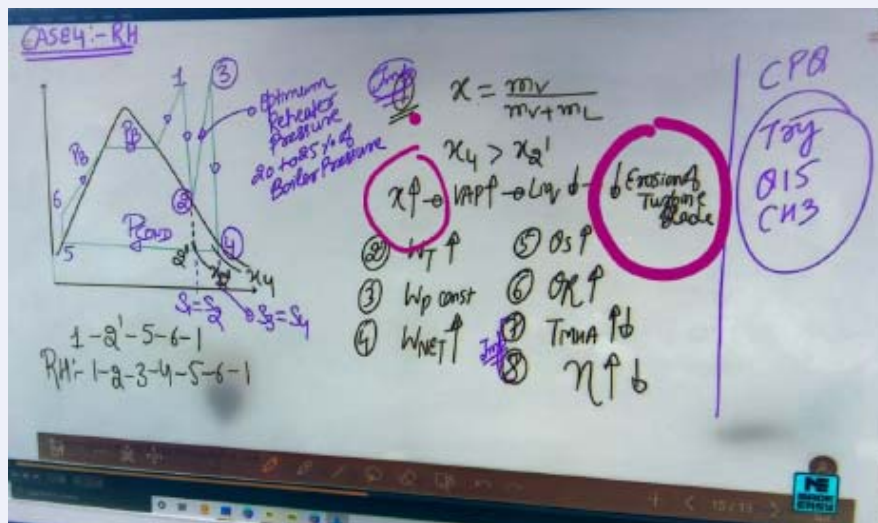 CASE4:-RH
1
3
Optimum
Reheater
Pressure
20 to 25% of
Boiler Pressure
PB
PB
6
5
PCOND
2
2'
4
x2'
x4
S1=S2
S3=S4
1-2'-5-6-1
RH:-1-2-3-4-5-6-1
Imp
1 x = mv
mv+mL
x4 > x2'
x↑ → VAP↑ → Liq↓ - ↓ Erosion of
Turbine
Blade
2 WT ↑
3 Wp const
4 WNET ↑
5 Qs ↑
6 QR ↑
Imp
7 TMHA ↑↓
8 η ↑↓
CPQ
Try
Q15
CH3
15/17
MADE
EASY